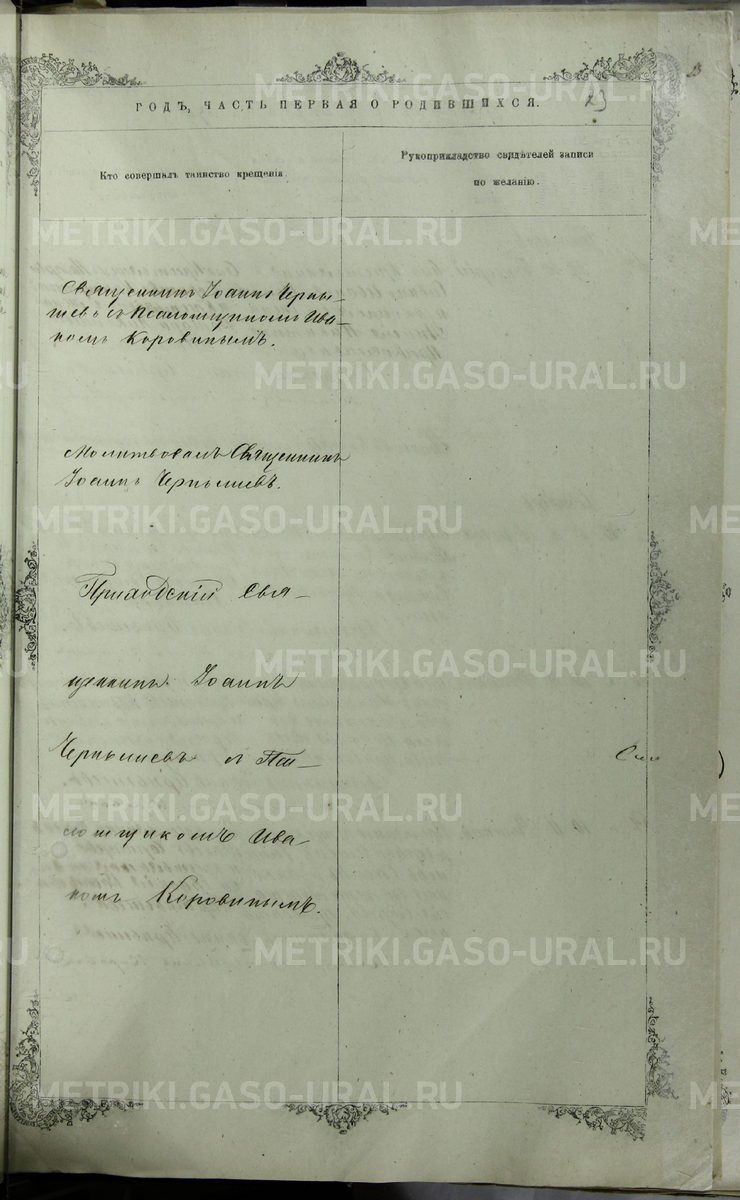 ГОДЪ, ЧАСТЬ ПЕРВАЯ О РОДИВШИХСЯ.
23
Кто совершалъ таинство крещенія
Рукоприкладство свидѣтелей записи
по желанію.
Священникъ Іоаннъ Черны-
шевъ съ Псаломщикомъ Ива-
номъ Коровинымъ.
Молитвовалъ Священникъ
Іоаннъ Чернышевъ.
Приходскій Свя-
щенникъ Іоаннъ
Чернышевъ съ Пса-
ломщикомъ Ива-
номъ Коровинымъ.
METRIKI.GASO-URAL.RU